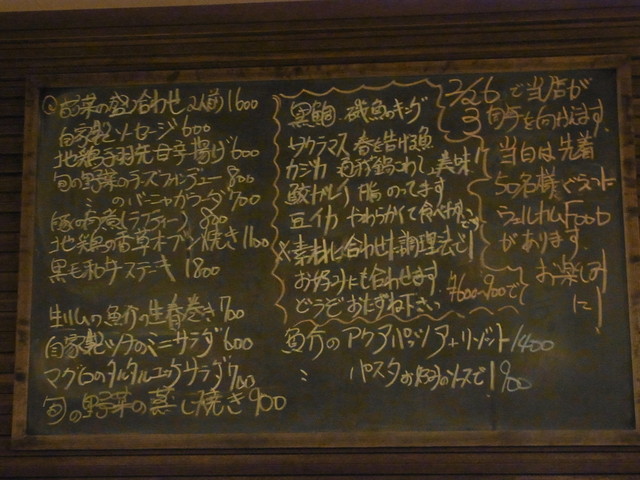 前菜の盛り合わせ 2人前 1600
自家製ソーセージ 600
地鶏手羽先甘辛揚げ 600
旬の野菜のチーズフォンデュー 800
〃 のバーニャカウダ 700
豚の 煮(ラフティー) 800
地魚の香草オーブン焼き 1100
黒毛和牛ステーキ 1800
生ハムの魚介の生春巻き 700
自家製ツナのミニサラダ 600
マグロのタルタルユッケサラダ 700
旬の野菜の蒸し焼き 900
黒鯛 磯魚のキング
サクラマス 春を告げる魚
カジカ 別名鍋こわし、美味!!
鮫ガレイ 脂のってます
豆イカ やわらかくて食べ やすいです
※素材に合わせた調理法で!
お好みにも合わせます
どうぞおたずね下さい
¥600~900で
魚介のアクアパッツア+リゾット 1400
〃 パスタお好みのソースで 1900
2/26で当店が
3周年を向けえます
当日は先着
50名様ぐらいに
ウェルカムFOOD
があります
お楽しみ
に!